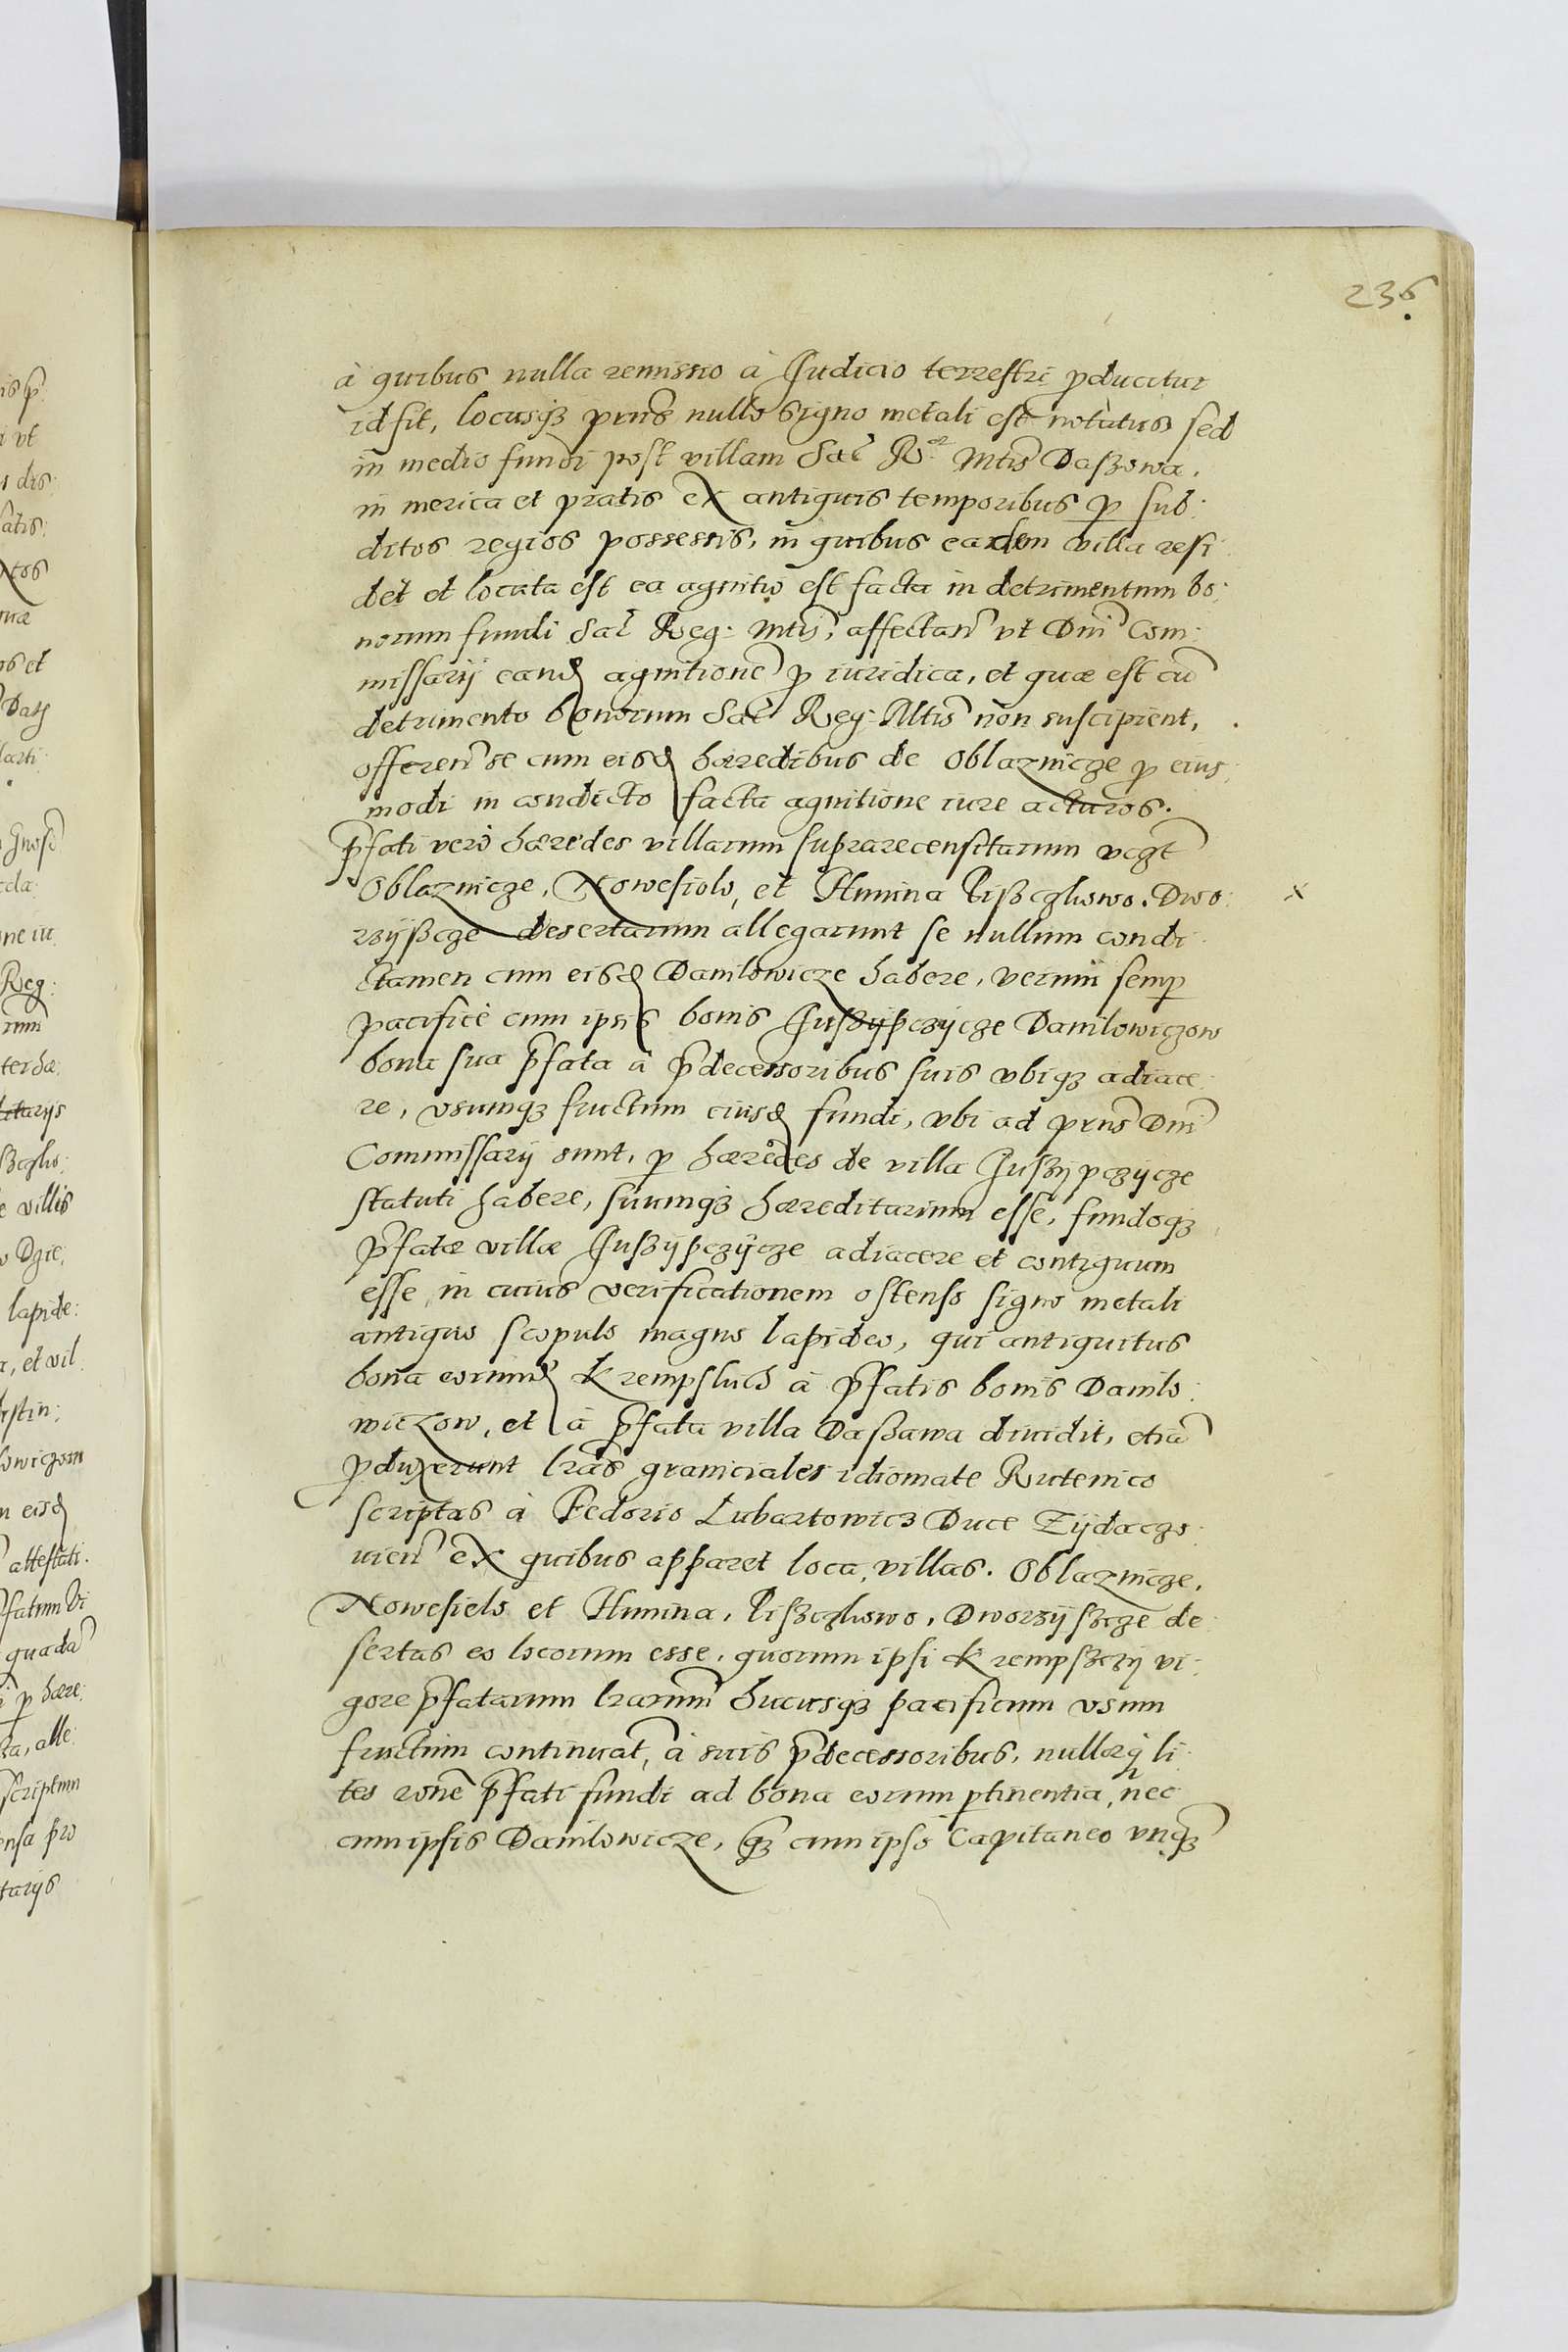 236
à quibus nulla remissio à Judicio terrestri pducitur
id sit, locusqȝ pnˢ nullo signo metali est notatus sed
in medio fundi post villam Sac̃ R. Mtis Daßowa.
in merica et pratis ex antiquis temporibus p sub:
ditos regios possessis, in quibus eadem villa resi
det et locata est ea agnitio est facta in detrimentum bo:
norum fundi Sac̃ Reg: Mtis, affectan̄ vt Dni Com:
missarij eand agnitionē p iuridica, et quæ est cū
detrimento bonorum Sac̃ Reg: Mtis non suscipient,
offeren̄ se cum eisd hæredibus de Oblaznicze p eius:
modi in condicto facta agnitione iure acturos.
p̄fati verò hæredes villarum suprarecensitarum vcgt
Oblaznicze, Nowesiolo, et Humina Lißczhowo. Dwo: x
rzyßcze desertarum allegarunt se nullum condi
ctamen cum eisd Danilowicze habere, verum semp
pacificè cum ipsis bonis Juszÿpczÿcze Danilowiczow
bona sua p̄fata à p̄decessoribus suis vbiqȝ adiace:
re, vsumqȝ fructum eiusd fundi, vbi ad pnˢ Dni
Commissarij sunt, p hæredes de villa Juszÿpczÿcze
statuti habere, suumqȝ hæreditarium esse, fundoqȝ
p̄fatæ villæ Juszÿpczÿcze adiacere et contiguum
esse, in cuius verificationem ostenso signo metali
antiquo scopulo magno lapideo, qui antiquitus
bona eorund Krempsluch à p̄fatis bonis Danilo:
wiczow, et à p̄fata villa Daßawa diuidit, etiā
pduxerunt lr̄as graniciales idiomate Rutenico
scriptas à Fedorio Lubartowicz Duce Zÿdaczo:
uien̄ ex quibus apparet loca, villas. Oblaznicze,
Nowesielo et Humina, Lißczhowo, Dworzÿszcze de:
sertas eo locorum esse, quorum ipsi Krempszczÿ vi:
gore p̄fatarum lr̄arum hucusqȝ pacificum vsum
fructum continuāt, à suis p̄decessoribus, nullasqȝ li:
tes ronē p̄fati fundi ad bona eorum ptinentia, nec
cum ipsis Danilowicze, qȝ cum ipso Capitaneo vnqȝ